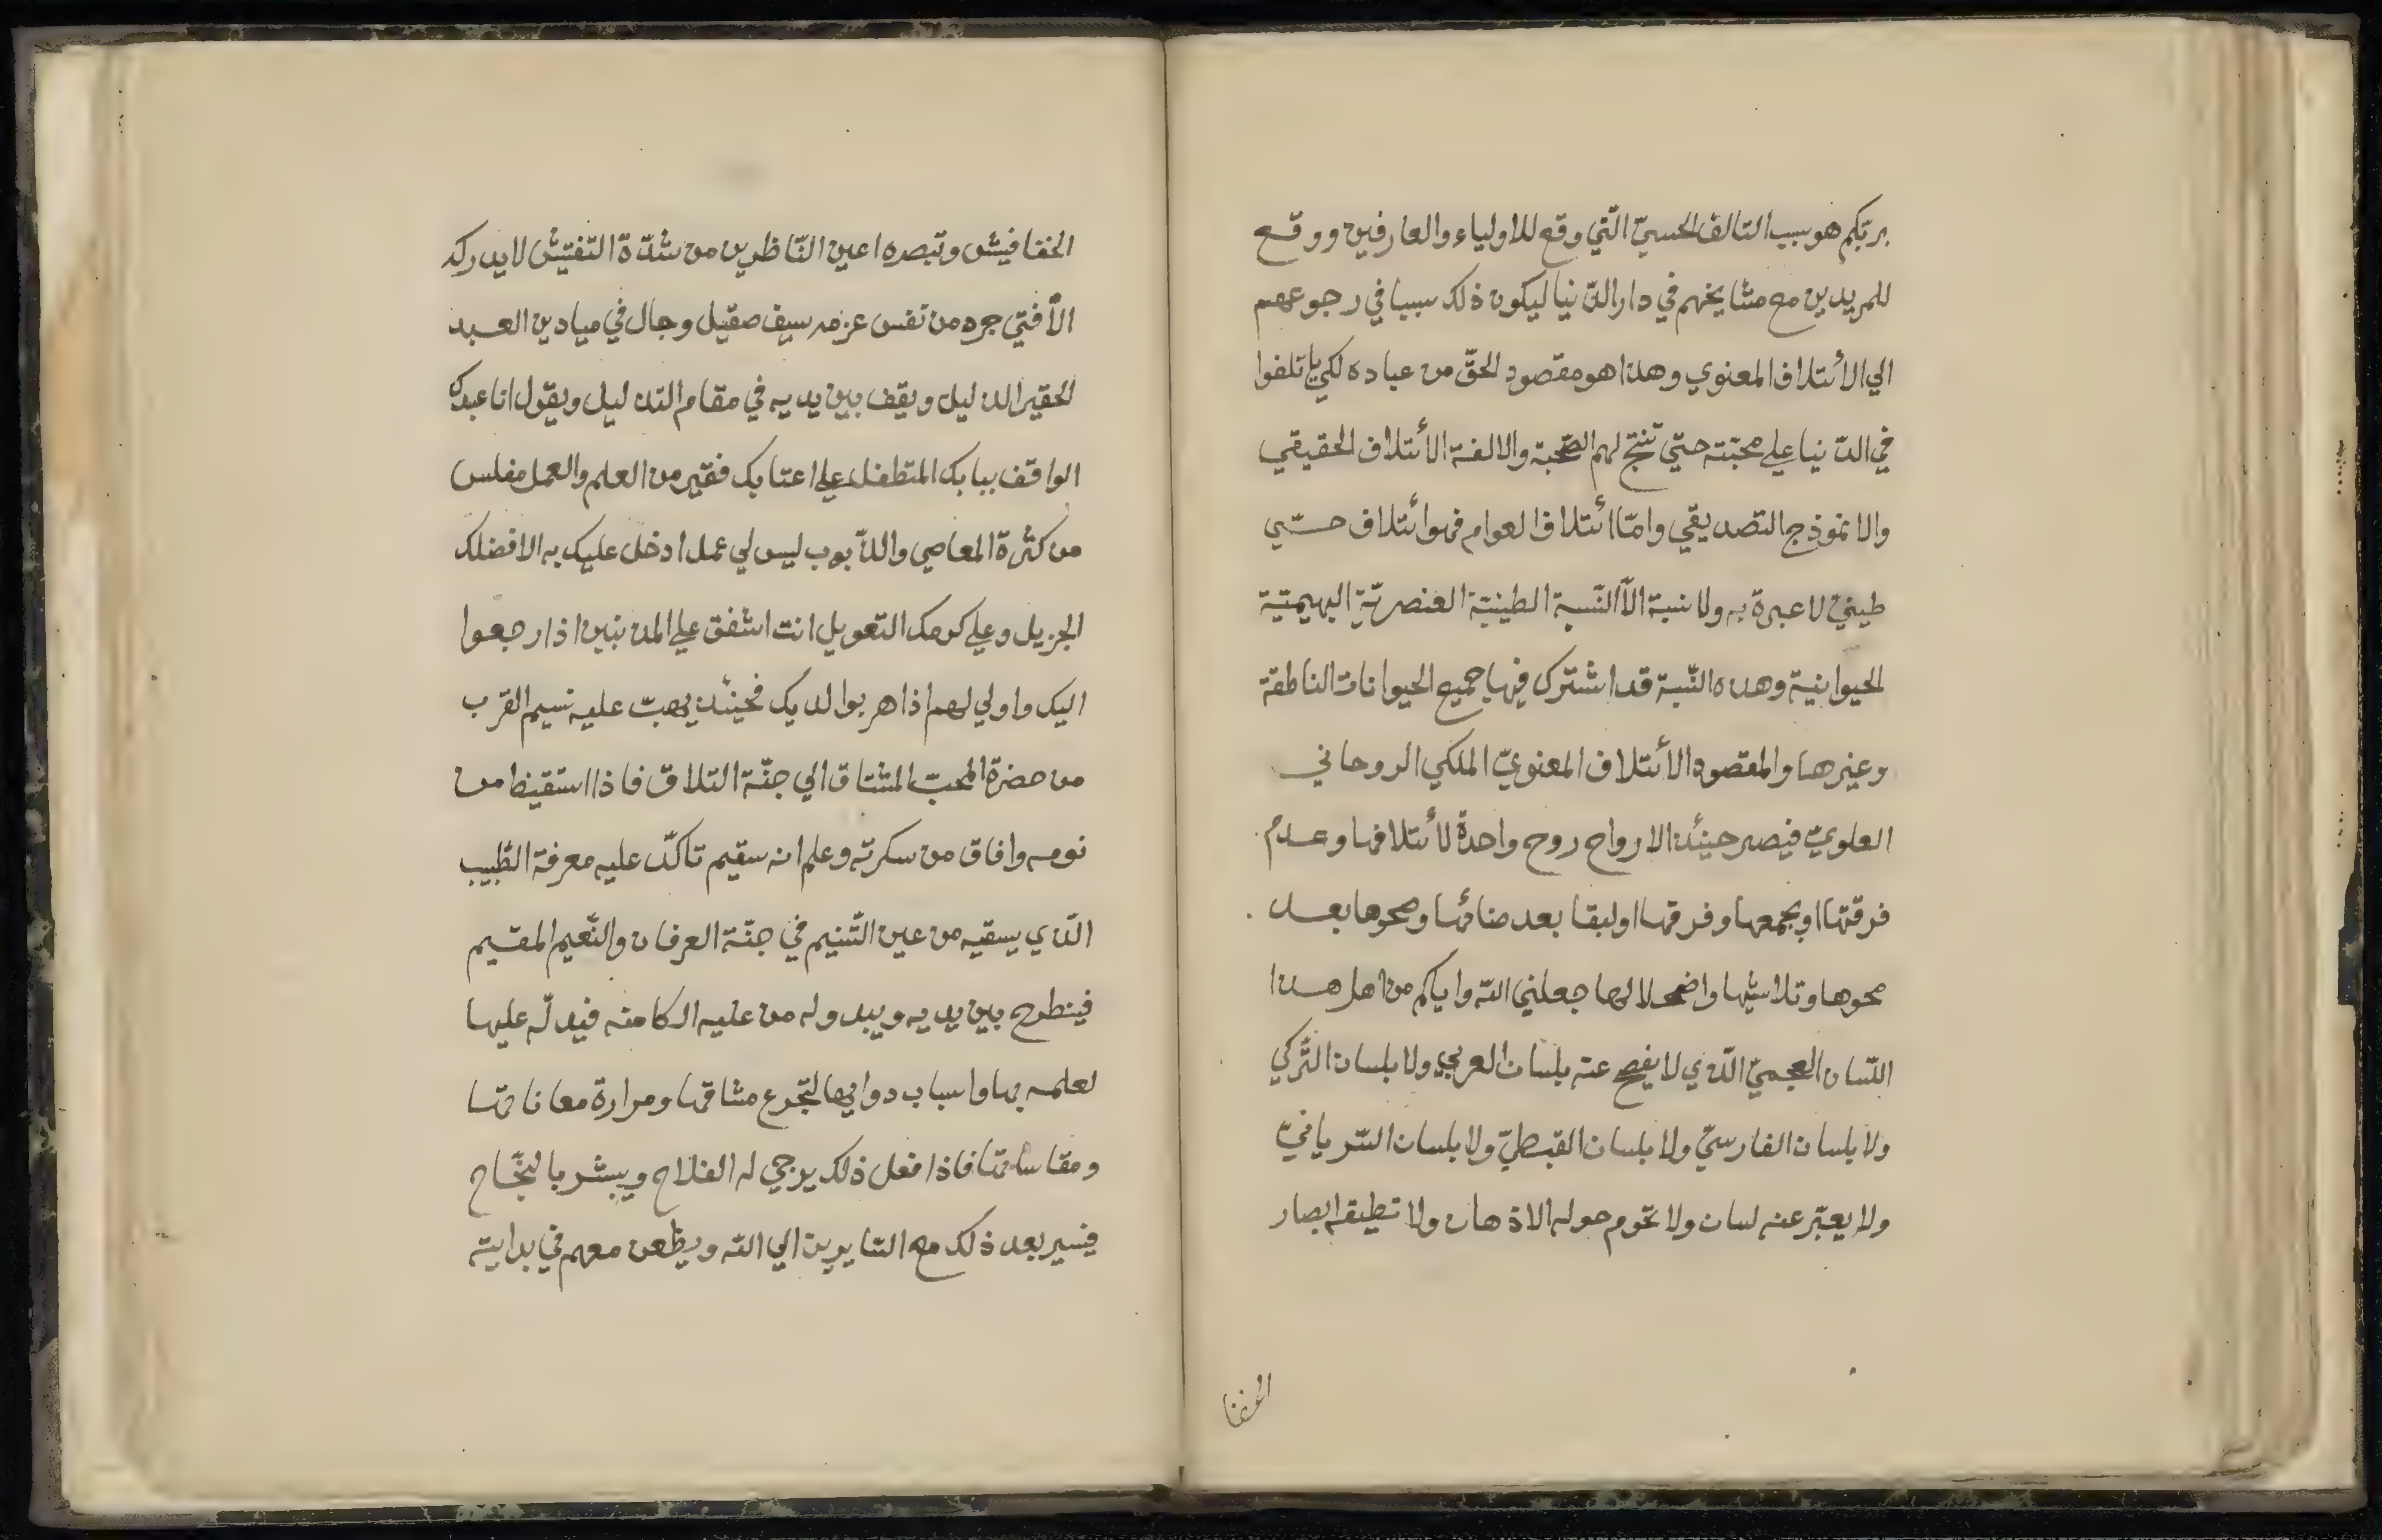 بربّكم هو سبب التالف الحسيّ الّتي وقع للاولياء والعارفين ووقع
للمريدين مع مشايخهم في دار الدّنيا ليكون ذلك سببا في رجوعهم
الي الائتلاف المعنوي وهذا هو مقصود الحقّ من عباده لكي ياتلفوا
في الدّنيا علي محبّته حتي تنتج لهم الصّحبة والالفة الائتلاف الحقيقي
والانموذج التصديقي وامّا ائتلاف العوام فهو ائتلاف حسّي
طيني لا عبرة به ولا نسبة الاّ النّسبة الطينيّة العنصريّة البهيميّة
الحيوانية وهذه النّسبة قد اشترك فيها جميع الحيوانات الناطقة
وغيرها والمقصود الائتلاف المعنويّ الملكي الروحاني
العلويّ فيصير حينئذ الارواح روح واحدة لائتلافها وعدم
فرقتها او بجمعها وفرقها اولبقا بعد فنائها وصحوها بعد
محوها وتلاشيها واضمحلالها جعلني الله واياكم من اهل هذا
اللّسان العجميّ الّذي لا يفصح عنه بلسان العربي ولا بلسان التّركي
ولا بلسان الفارسيّ ولا بلسان القبطيّ ولا بلسان السّريانيّ
ولا يعبّر عنه لسان ولا تحوم حوله الاذهان ولا تطيقه ابصار
الخفا
الخفافيش وتبصره اعين النّاظرين من شدّة التّفتيش لا يدركه
الاّ فتي جرد من نفس عزمه سيف صقيل وجال في ميادين العبد
الحقير الذليل ويقف بين يديه في مقام التذليل ويقول انا عبدك
الواقف ببابك المتطفل علي اعتابك فقير من العلم والعمل مفلس
من كثرة المعاصي والذّبوب ليس لي عمل ادخل عليك به الا فضلك
الجزيل وعلي كرمك التعويل انت اشفق علي المذنبين اذا رجعوا
اليك واولي لهم اذا هربوا لديك فحينئذ يهبّ عليه نسيم القرب
من حضرة المحبّ المشتاق الي جنّة التلاق فاذا استقيظ من
نومه وافاق من سكرته وعلم انه سقيم تاكّد عليه معرفة الطّبيب
الّذي يسقيه من عين التّسنيم في جنّة العرفان والنّعيم المقيم
فينطرح بين يديه ويبدو له من عليه الكامنه فيدلّه عليها
لعلمه بها واسباب دوايها لتجّرع مشاقها ومرارة معاناتها
ومقاساتها فاذا فعل ذلك يرجي له الفلاح ويبشر بالنّجاح
فيسير بعد ذلك مع السّايرين الي الله ويظعن معهم في بدايته